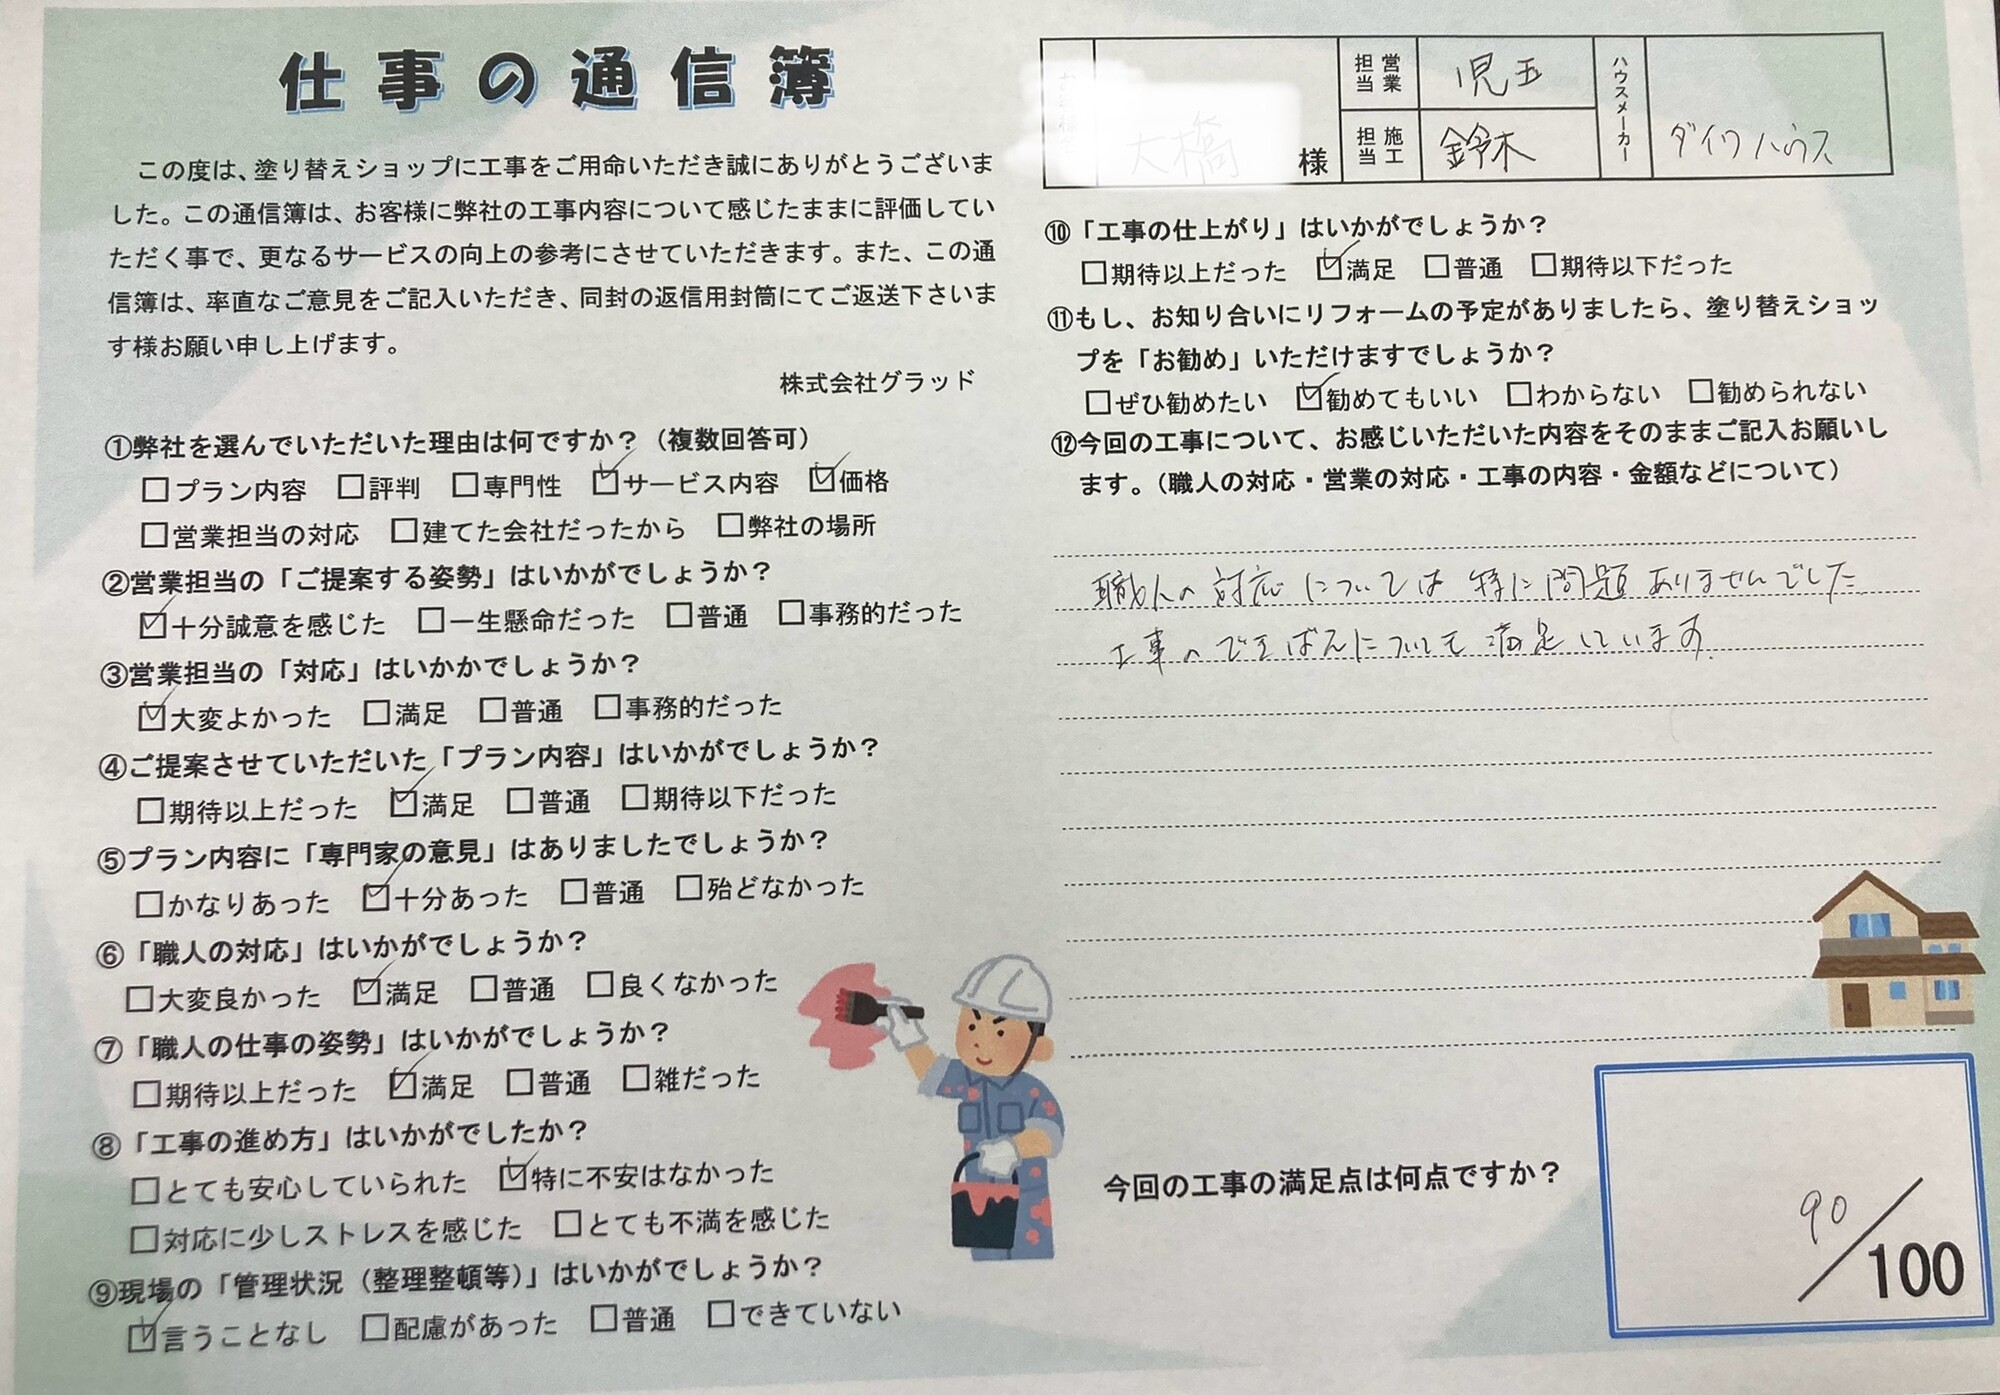 仕事の通信簿
この度は、塗り替えショップに工事をご用命いただき誠にありがとうございま
した。この通信簿は、お客様に弊社の工事内容について感じたままに評価してい
ただく事で、更なるサービスの向上の参考にさせていただきます。また、この通
信簿は、率直なご意見をご記入いただき、同封の返信用封筒にてご返送下さいま
す様お願い申し上げます。
株式会社グラッド
①弊社を選んでいただいた理由は何ですか？（複数回答可）
□プラン内容 □評判 □専門性 ☑サービス内容 ☑価格
□営業担当の対応 □建てた会社だったから □弊社の場所
②営業担当の「ご提案する姿勢」はいかがでしょうか？
☑十分誠意を感じた □一生懸命だった □普通 □事務的だった
③営業担当の「対応」はいかかでしょうか？
☑大変よかった □満足 □普通 □事務的だった
④ご提案させていただいた「プラン内容」はいかがでしょうか？
□期待以上だった ☑満足 □普通 □期待以下だった
⑤プラン内容に「専門家の意見」はありましたでしょうか？
□かなりあった ☑十分あった □普通 □殆どなかった
⑥「職人の対応」はいかがでしょうか？
□大変良かった ☑満足 □普通 □良くなかった
⑦「職人の仕事の姿勢」はいかがでしょうか？
□期待以上だった ☑満足 □普通 □雑だった
⑧「工事の進め方」はいかがでしたか？
□とても安心していられた ☑特に不安はなかった
□対応に少しストレスを感じた □とても不満を感じた
⑨現場の「管理状況（整理整頓等）」はいかがでしょうか？
☑言うことなし □配慮があった □普通 □できていない
大橋 様
営業担当 児玉
施工担当 鈴木
ハウスメーカー ダイワハウス
⑩「工事の仕上がり」はいかがでしょうか？
□期待以上だった ☑満足 □普通 □期待以下だった
⑪もし、お知り合いにリフォームの予定がありましたら、塗り替えショッ
プを「お勧め」いただけますでしょうか？
□ぜひ勧めたい ☑勧めてもいい □わからない □勧められない
⑫今回の工事について、お感じいただいた内容をそのままご記入お願いし
ます。（職人の対応・営業の対応・工事の内容・金額などについて）
職人の対応については特に問題ありませんでした
工事のできばえについても満足しています.
今回の工事の満足点は何点ですか？
90/100